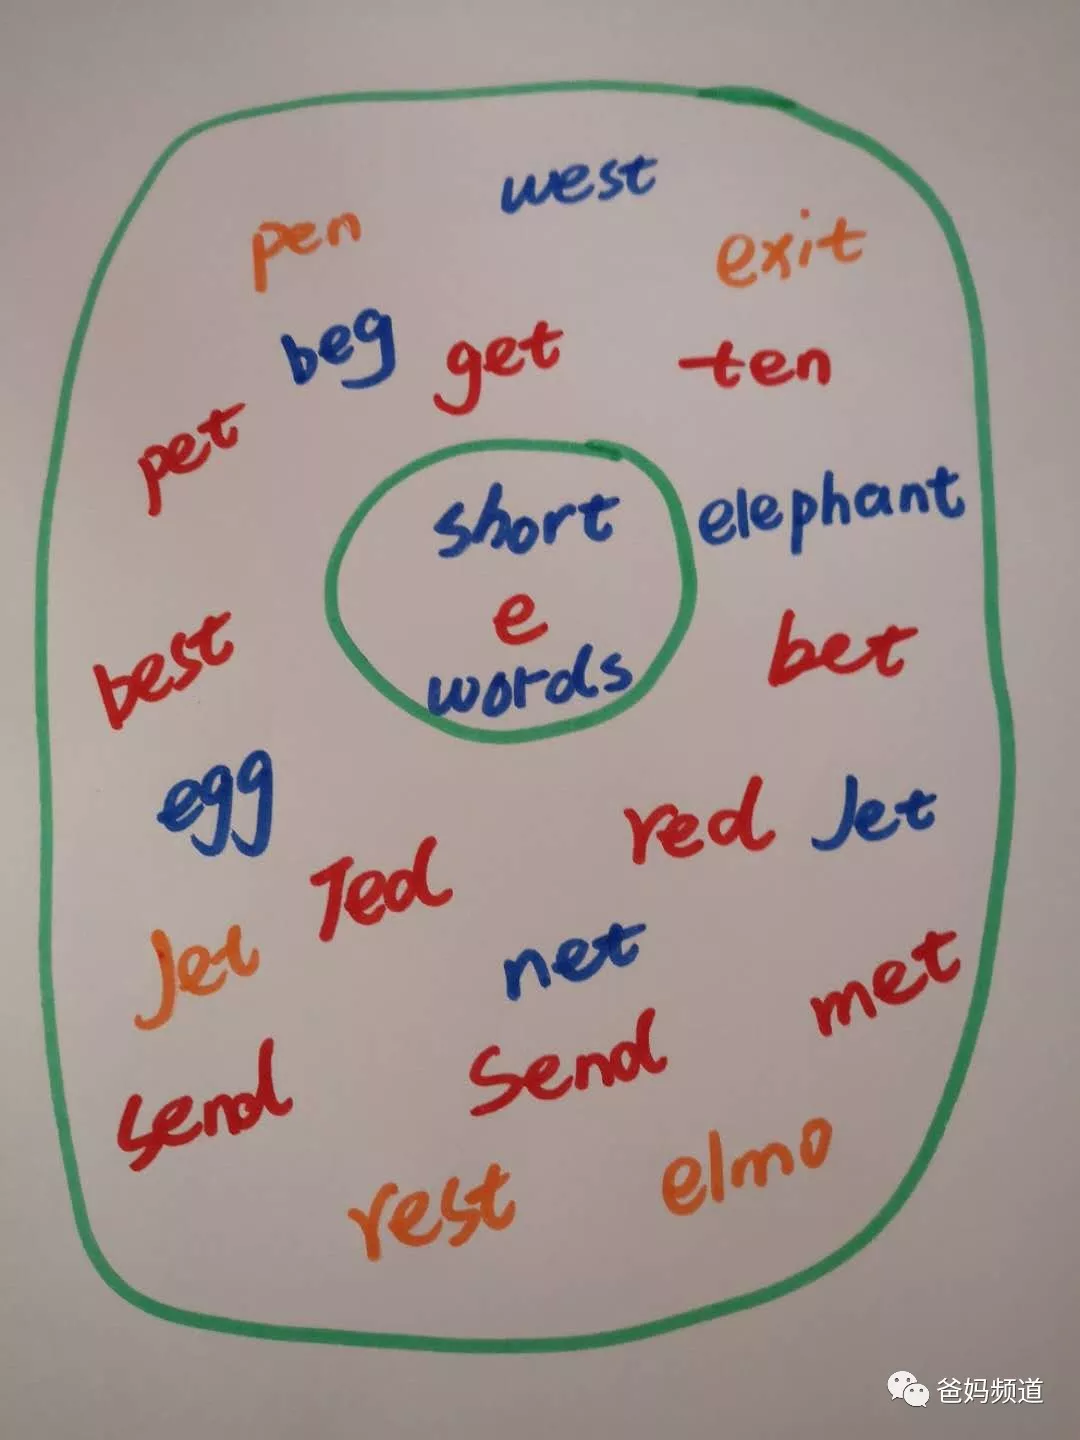 west
pen
exit
beg get ten
pet
short
elephant
e
words
best
bet
egg
red Jet
Ted
Jet
net
met
send
Send
rest
elmo
爸妈频道